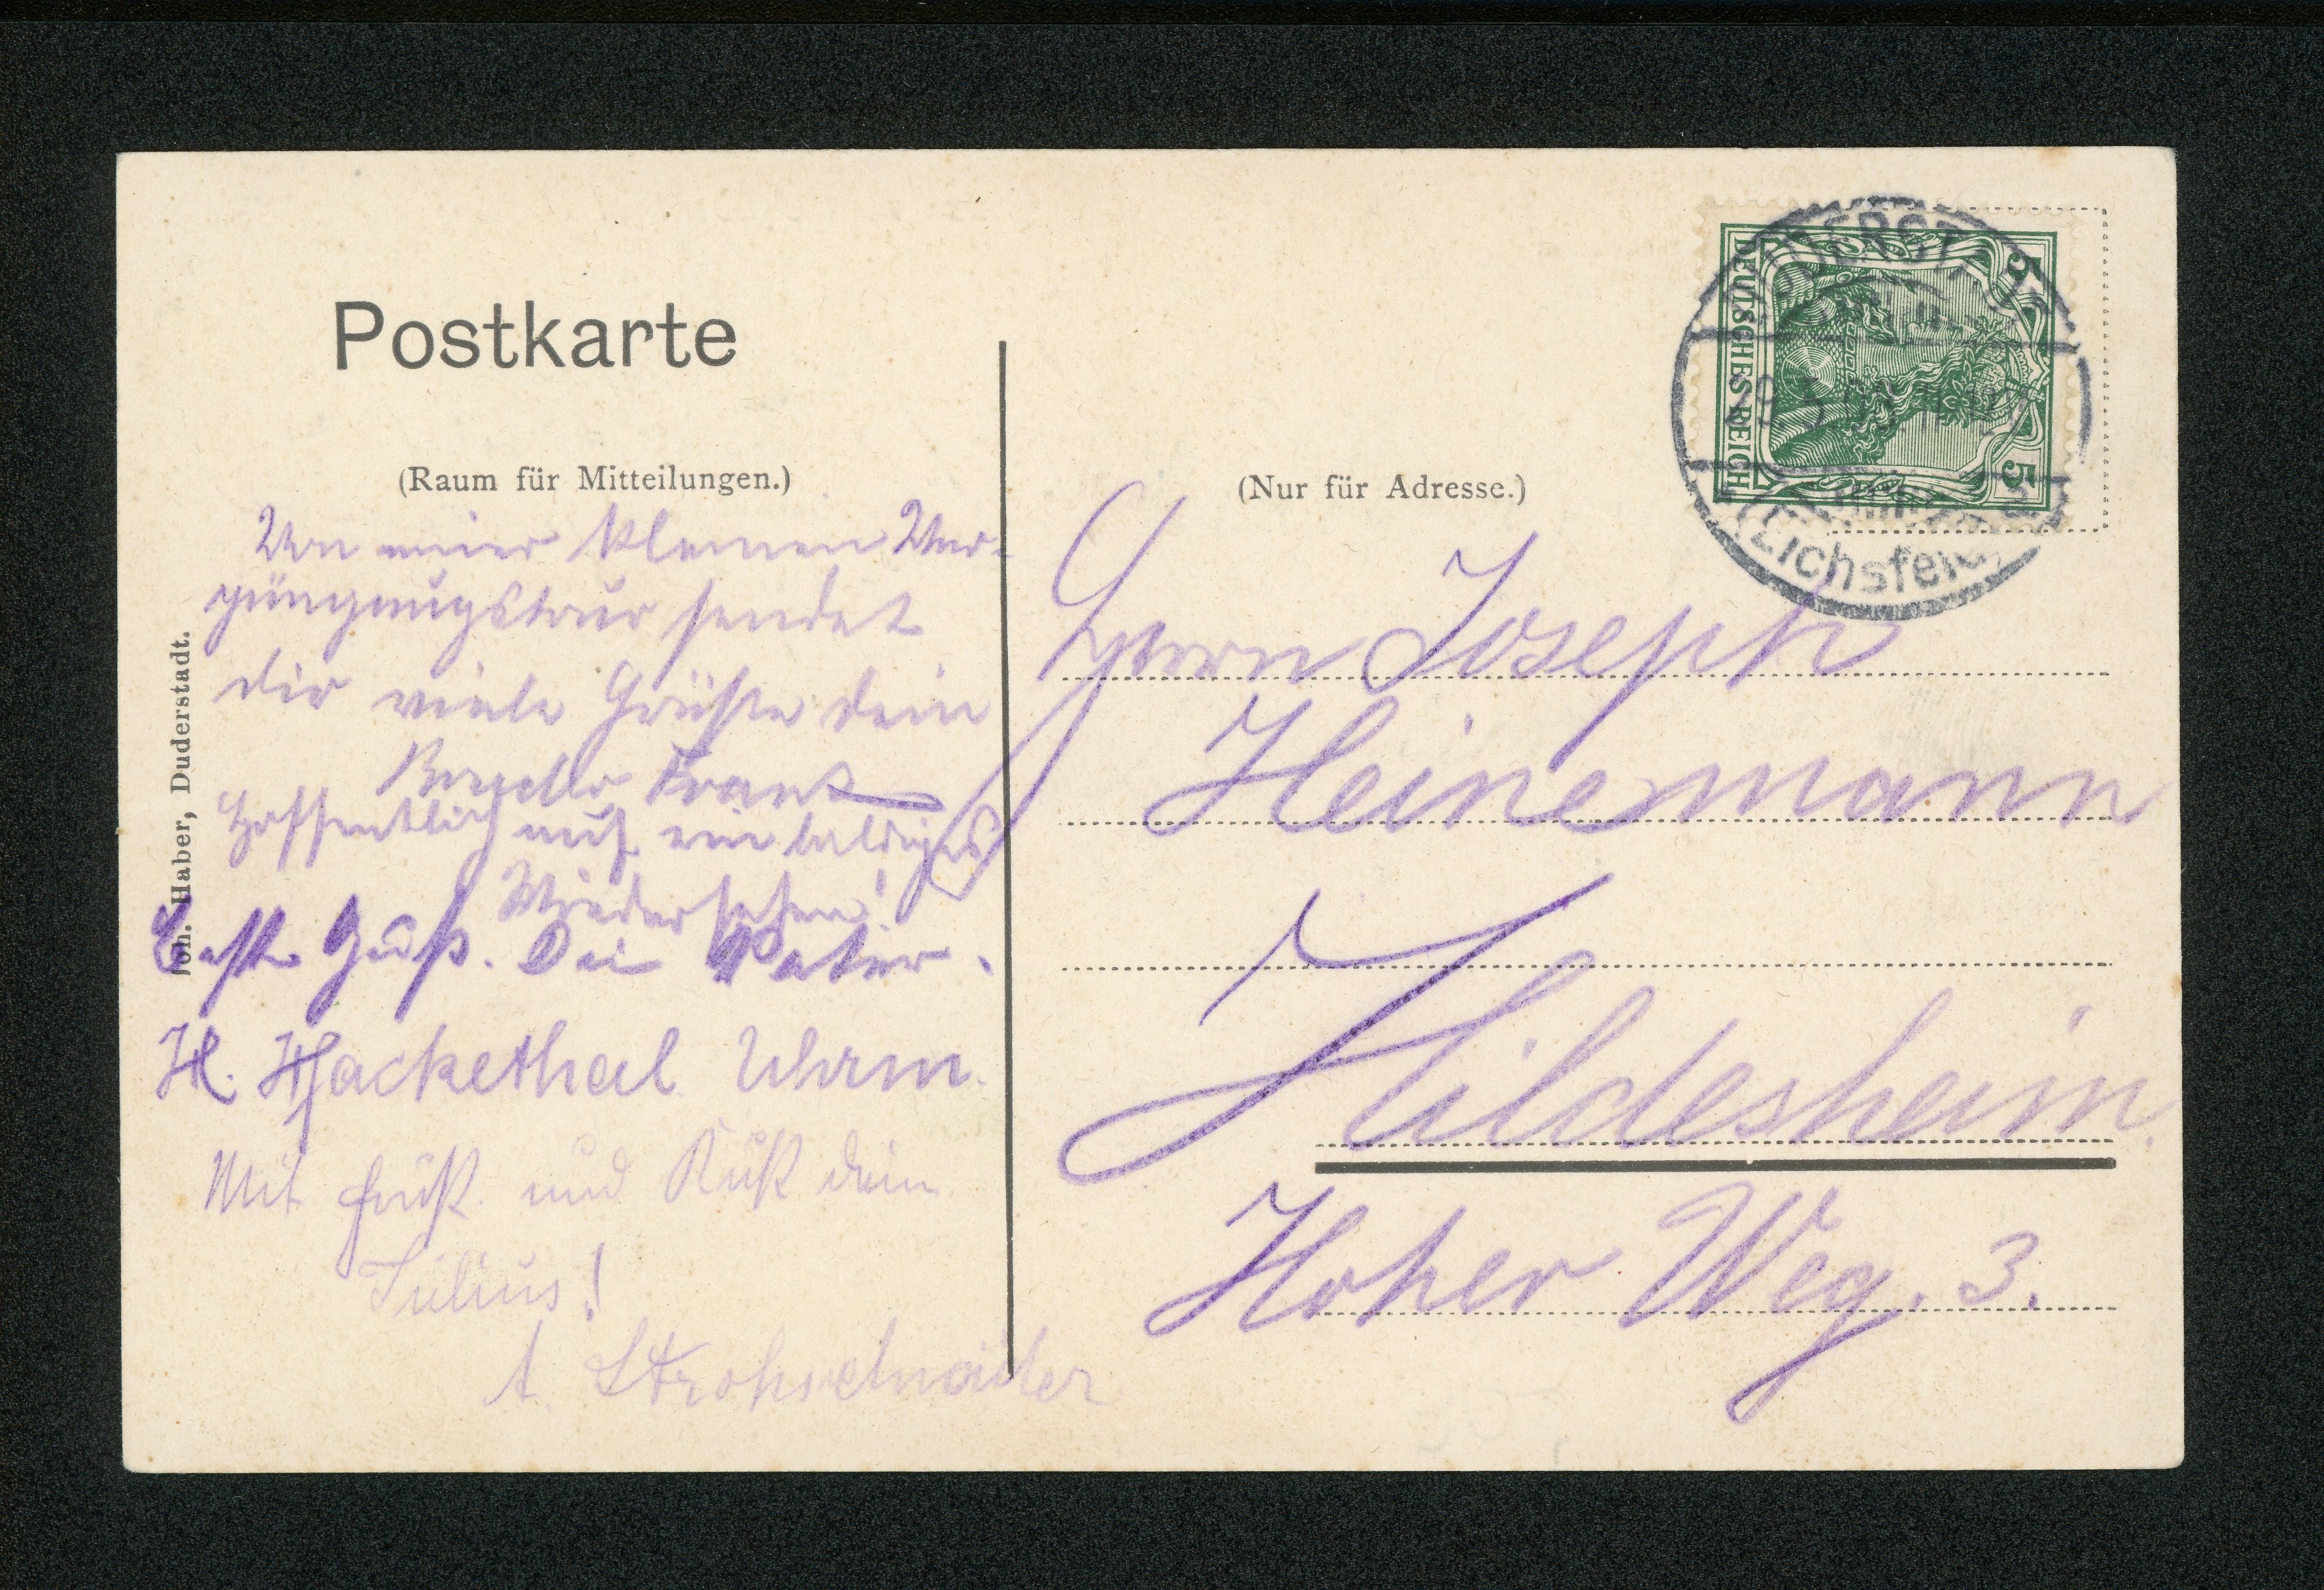 Postkarte
(Raum für Mitteilungen.)
Von einer kleinen Ver-
gnügungstour sendet
dir viele Grüße dein
Franz
Hoffentlich auf ein baldiges
Wiedersehen!
Beste Grüß. Dei Vater.
H. Hackethal
Mit Gruß und Kuß dein
Julius!
A. Strohschneider
Joh. Haber, Duderstadt.
(Nur für Adresse.)
Herrn Joseph
Heinemann
Hildesheim.
Hoher Weg. 3.
DEUTSCHES REICH
5 5
(Eichsfeld)